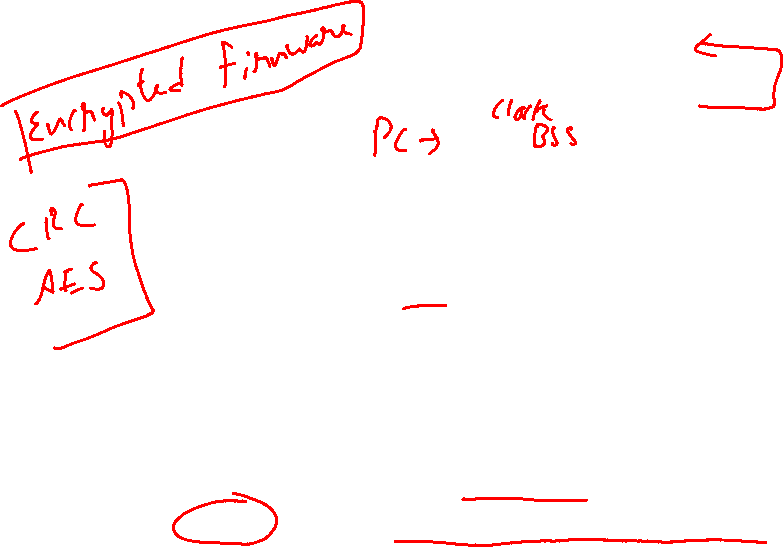 Encrypted Firmware
PC →
Clark
BSS
CRC
AES